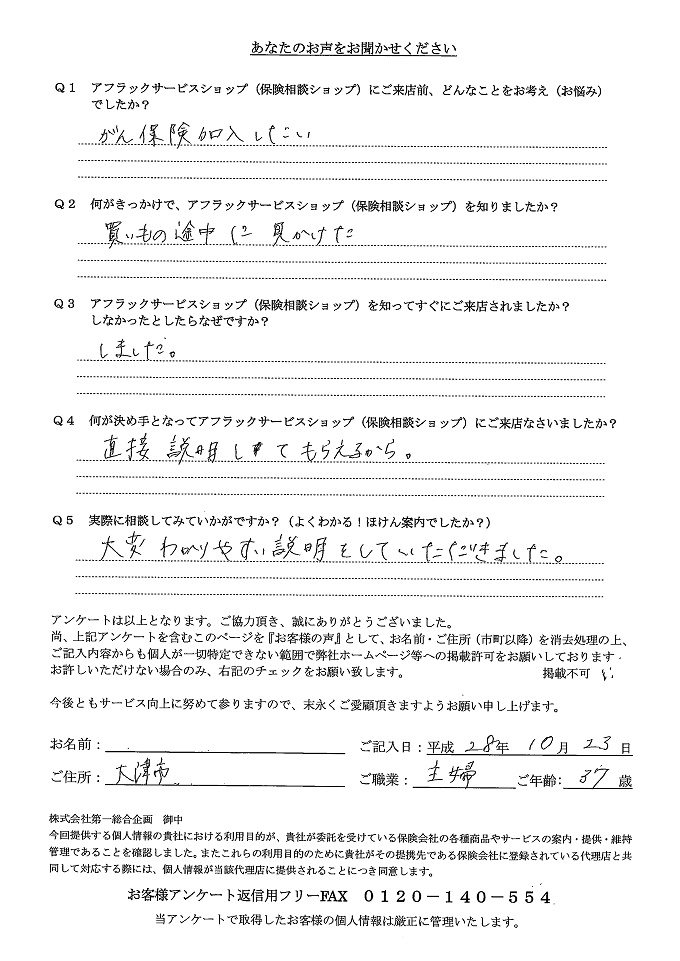 あなたのお声をお聞かせください
Q1 アフラックサービスショップ（保険相談ショップ）にご来店前、どんなことをお考え（お悩み）
でしたか？
がん保険加入したい
Q2 何がきっかけで、アフラックサービスショップ（保険相談ショップ）を知りましたか？
買いもの途中に見かけた
Q3 アフラックサービスショップ（保険相談ショップ）を知ってすぐにご来店されましたか？
しなかったとしたらなぜですか？
しました。
Q4 何が決め手となってアフラックサービスショップ（保険相談ショップ）にご来店なさいましたか？
直接説明してもらえるから。
Q5 実際に相談してみていかがですか？（よくわかる！ほけん案内でしたか？）
大変わかりやすい説明をしていただきました。
アンケートは以上となります。ご協力頂き、誠にありがとうございました。
尚、上記アンケートを含むこのページを『お客様の声』として、お名前・ご住所（市町以降）を消去処理の上、
ご記入内容からも個人が一切特定できない範囲で弊社ホームページ等への掲載許可をお願いしております
お許しいただけない場合のみ、右記のチェックをお願い致します。 掲載不可
今後ともサービス向上に努めて参りますので、末永くご愛顧頂きますようお願い申し上げます。
お名前： ご記入日：平成 28年 10月 23日
ご住所： 大津市 ご職業： 主婦 ご年齢： 37歳
株式会社第一総合企画 御中
今回提供する個人情報の貴社における利用目的が、貴社が委託を受けている保険会社の各種商品やサービスの案内・提供・維持
管理であることを確認しました。またこれらの利用目的のために貴社がその提携先である保険会社に登録されている代理店と共
同して対応する際には、個人情報が当該代理店に提供されることにつき同意します。
お客様アンケート返信用フリーFAX 0120－140－554
当アンケートで取得したお客様の個人情報は厳正に管理いたします。